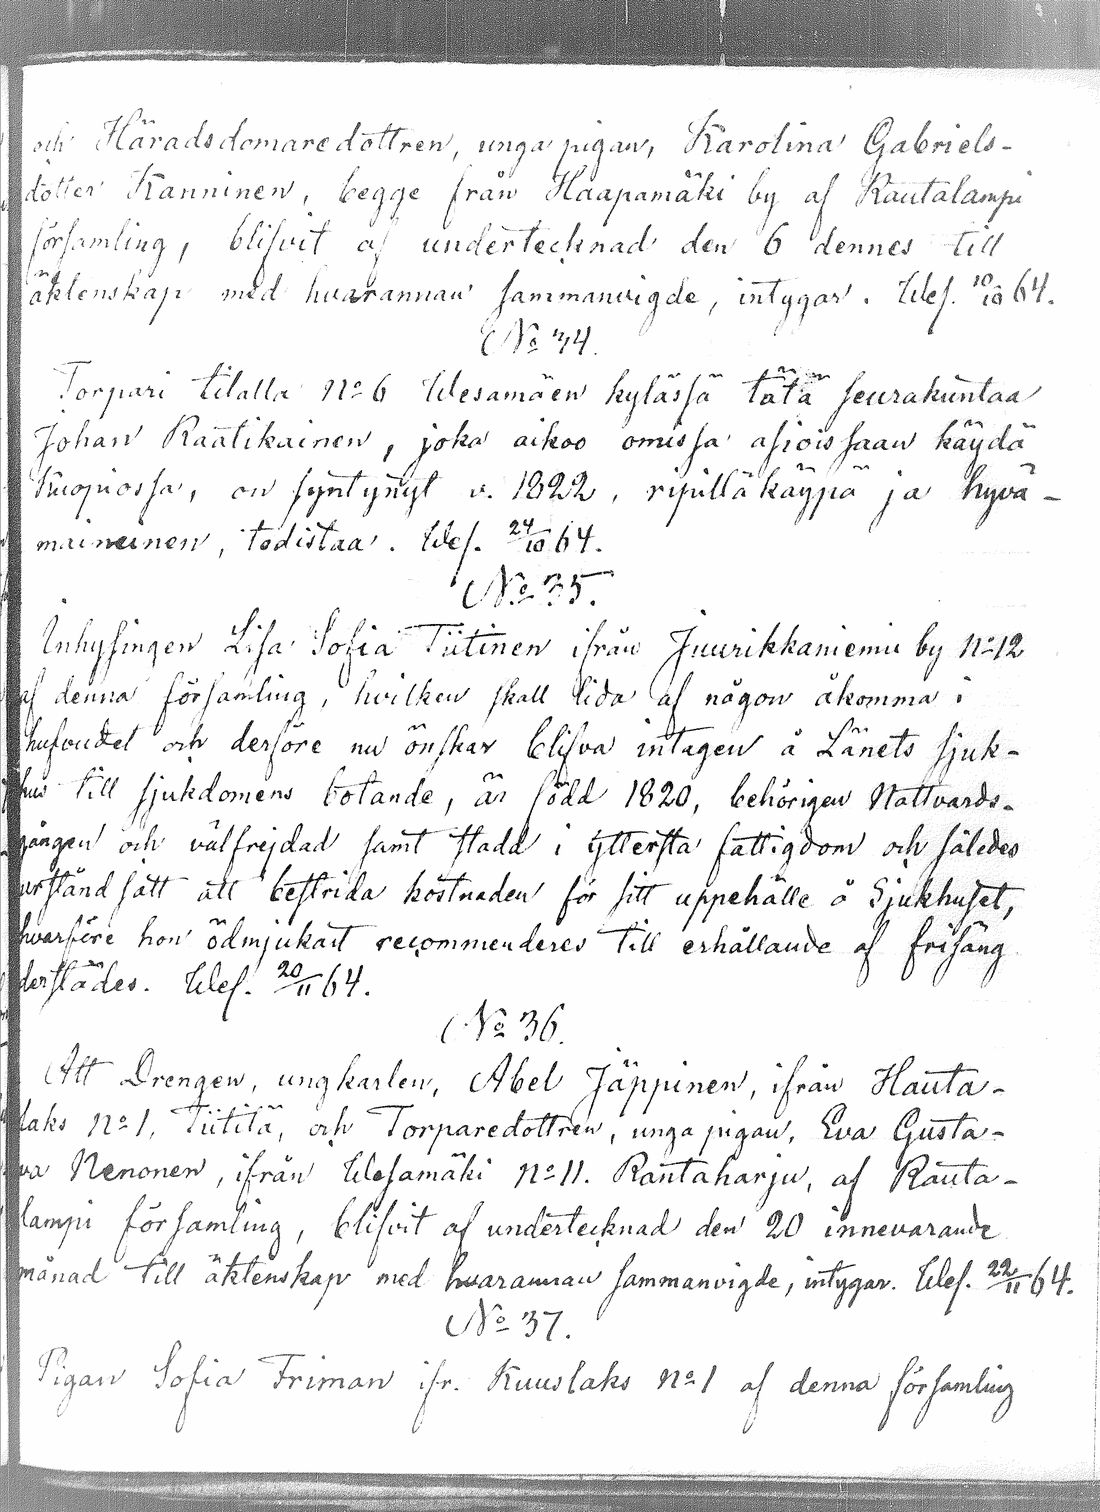 och Häradsdomaredottren, unga pigan, Karolina Gabriels-
dotter Kanninen, begge från Haapamäki by af Rautalampi
församling, blifvit af undertecknad den 6 dennes till
äktenskap med hvarannan sammanvigde, intygar. Wes. 10/10 64.
No 34.
Torpari tilalla No 6 Wesamäen kylässä tätä seurakuntaa
Johan Raatikainen, joka aikoo omissa asioissaan käydä
Kuopiossa, on syntynyt v. 1822, ripilläkäypä ja hyvä-
maineinen, todistaa. Wes. 24/10 64.
No 35.
Inhysingen Lisa Sofia Tiitinen ifrån Juurikkaniemi by No 12
af denna församling, hvilken skall lida af någon åkomma i
hufvudet och derföre nu önskar blifva intagen å Länets sjuk-
hus till sjukdomens botande, är född 1820, behörigen Nattvards-
gången och välfrejdad samt stadd i yttersta fattigdom och således
urståndsatt att bestrida kostnaden för sitt uppehälle å Sjukhuset,
hvarföre hon ödmjukast recommenderes till erhållande af frisäng
derstädes. Wes. 20/11 64.
No 36.
Att Drengen, ungkarlen, Abel Jäppinen, ifrån Hauta-
laks No 1, Tiitilä, och Torparedottren, unga pigan, Eva Gusta-
va Nenonen, ifrån Wesamäki No 11. Rantaharju, af Rauta-
lampi församling, blifvit af undertecknad den 20 innevarande
månad till äktenskap med hvarannan sammanvigde, intygar. Wes. 22/11 64.
No 37.
Pigan Sofia Friman ifr. Kuuslaks No 1 af denna församling